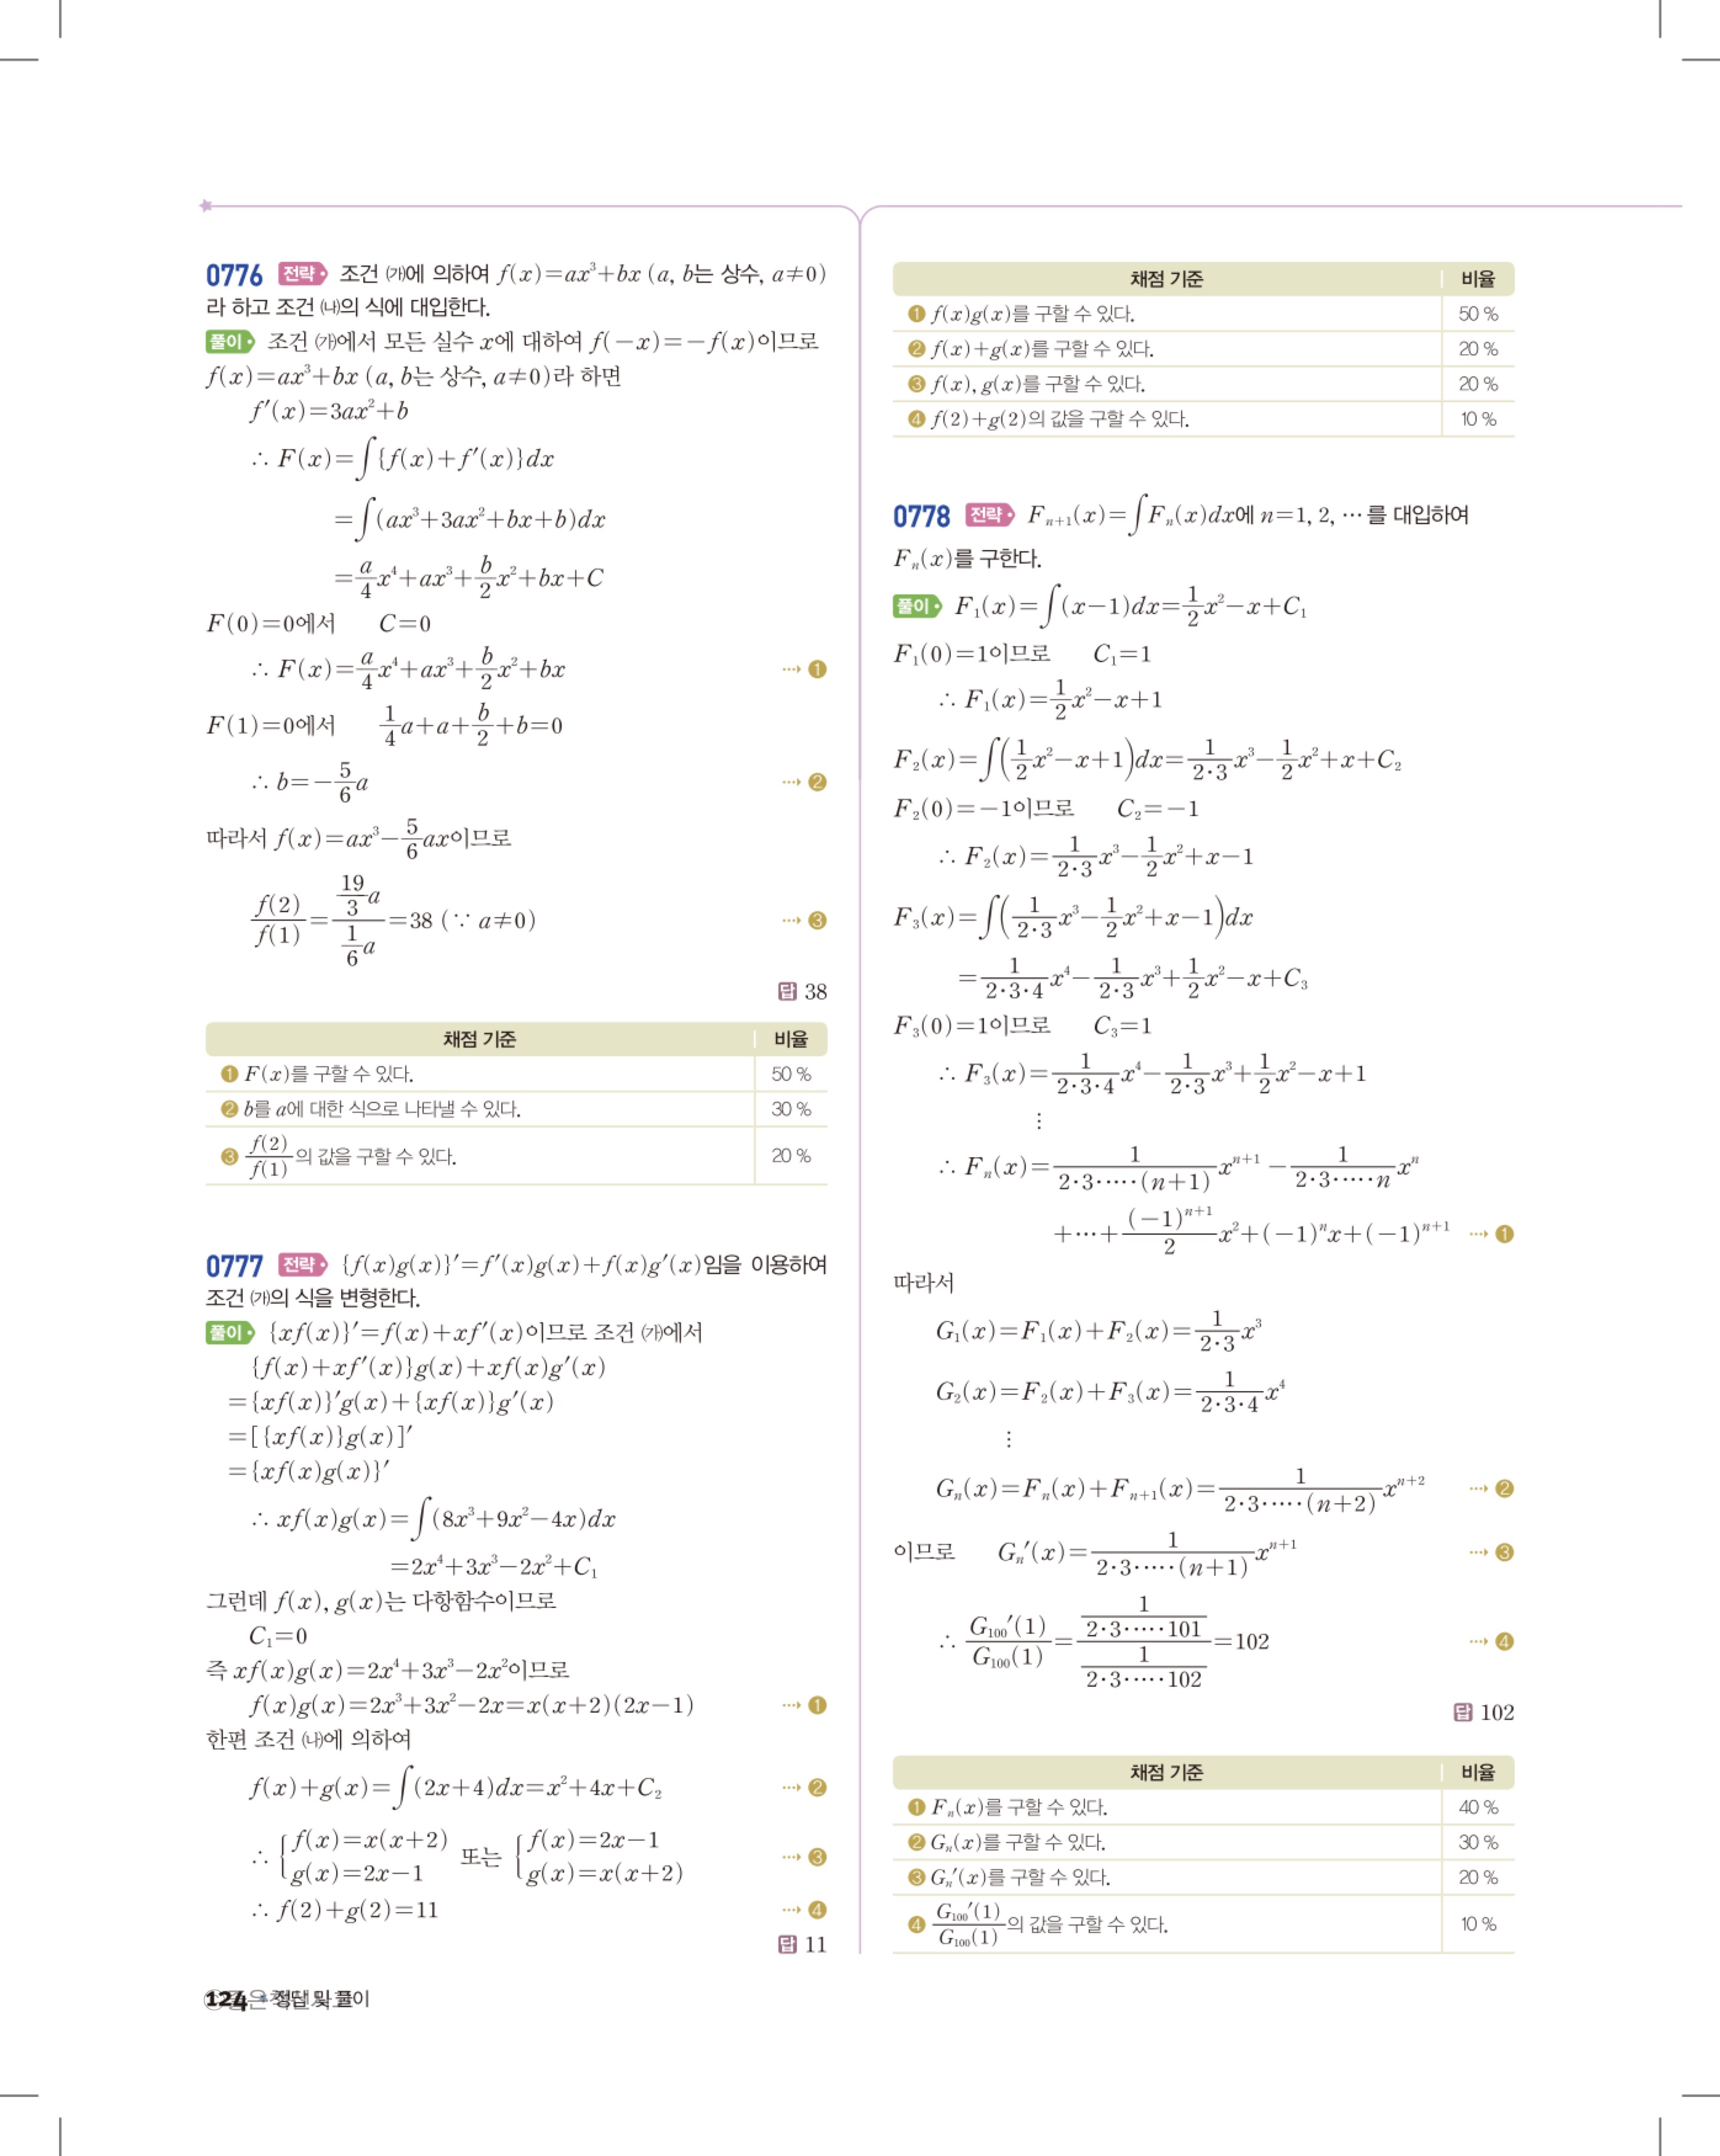 0776 전략 조건 ㈎에 의하여 f(x)=ax³+bx (a, b는 상수, a≠0)
라 하고 조건 ㈏의 식에 대입한다.
풀이 조건 ㈎에서 모든 실수 x에 대하여 f(-x)=-f(x)이므로
f(x)=ax³+bx (a, b는 상수, a≠0)라 하면
f′(x)=3ax²+b
∴ F(x)=∫{f(x)+f′(x)}dx
=∫(ax³+3ax²+bx+b)dx
=a/4 x⁴+ax³+b/2 x²+bx+C
F(0)=0에서 C=0
∴ F(x)=a/4 x⁴+ax³+b/2 x²+bx ⋯→ ❶
F(1)=0에서 1/4 a+a+b/2+b=0
∴ b=-5/6 a ⋯→ ❷
따라서 f(x)=ax³-5/6 ax이므로
f(2)/f(1)=(19/3 a)/(1/6 a)=38 (∵ a≠0) ⋯→ ❸
답 38
채점 기준 비율
❶ F(x)를 구할 수 있다. 50 %
❷ b를 a에 대한 식으로 나타낼 수 있다. 30 %
❸ f(2)/f(1)의 값을 구할 수 있다. 20 %
0777 전략 {f(x)g(x)}′=f′(x)g(x)+f(x)g′(x)임을 이용하여
조건 ㈎의 식을 변형한다.
풀이 {xf(x)}′=f(x)+xf′(x)이므로 조건 ㈎에서
{f(x)+xf′(x)}g(x)+xf(x)g′(x)
={xf(x)}′g(x)+{xf(x)}g′(x)
=[{xf(x)}g(x)]′
={xf(x)g(x)}′
∴ xf(x)g(x)=∫(8x³+9x²-4x)dx
=2x⁴+3x³-2x²+C₁
그런데 f(x), g(x)는 다항함수이므로
C₁=0
즉 xf(x)g(x)=2x⁴+3x³-2x²이므로
f(x)g(x)=2x³+3x²-2x=x(x+2)(2x-1) ⋯→ ❶
한편 조건 ㈏에 의하여
f(x)+g(x)=∫(2x+4)dx=x²+4x+C₂ ⋯→ ❷
∴ {f(x)=x(x+2) g(x)=2x-1 또는 {f(x)=2x-1 g(x)=x(x+2) ⋯→ ❸
∴ f(2)+g(2)=11 ⋯→ ❹
답 11
124 정답 및 풀이
채점 기준 비율
❶ f(x)g(x)를 구할 수 있다. 50 %
❷ f(x)+g(x)를 구할 수 있다. 20 %
❸ f(x), g(x)를 구할 수 있다. 20 %
❹ f(2)+g(2)의 값을 구할 수 있다. 10 %
0778 전략 Fₙ₊₁(x)=∫Fₙ(x)dx에 n=1, 2, ⋯를 대입하여
Fₙ(x)를 구한다.
풀이 F₁(x)=∫(x-1)dx=1/2 x²-x+C₁
F₁(0)=1이므로 C₁=1
∴ F₁(x)=1/2 x²-x+1
F₂(x)=∫(1/2 x²-x+1)dx=1/(2·3) x³-1/2 x²+x+C₂
F₂(0)=-1이므로 C₂=-1
∴ F₂(x)=1/(2·3) x³-1/2 x²+x-1
F₃(x)=∫(1/(2·3) x³-1/2 x²+x-1)dx
=1/(2·3·4) x⁴-1/(2·3) x³+1/2 x²-x+C₃
F₃(0)=1이므로 C₃=1
∴ F₃(x)=1/(2·3·4) x⁴-1/(2·3) x³+1/2 x²-x+1
⋮
∴ Fₙ(x)=1/(2·3·⋯·(n+1)) xⁿ⁺¹-1/(2·3·⋯·n) xⁿ
+⋯+(-1)ⁿ⁺¹/2 x²+(-1)ⁿx+(-1)ⁿ⁺¹ ⋯→ ❶
따라서
G₁(x)=F₁(x)+F₂(x)=1/(2·3) x³
G₂(x)=F₂(x)+F₃(x)=1/(2·3·4) x⁴
⋮
Gₙ(x)=Fₙ(x)+Fₙ₊₁(x)=1/(2·3·⋯·(n+2)) xⁿ⁺² ⋯→ ❷
이므로 Gₙ′(x)=1/(2·3·⋯·(n+1)) xⁿ⁺¹ ⋯→ ❸
∴ G₁₀₀′(1)/G₁₀₀(1)=(1/(2·3·⋯·101))/(1/(2·3·⋯·102))=102 ⋯→ ❹
답 102
채점 기준 비율
❶ Fₙ(x)를 구할 수 있다. 40 %
❷ Gₙ(x)를 구할 수 있다. 30 %
❸ Gₙ′(x)를 구할 수 있다. 20 %
❹ G₁₀₀′(1)/G₁₀₀(1)의 값을 구할 수 있다. 10 %